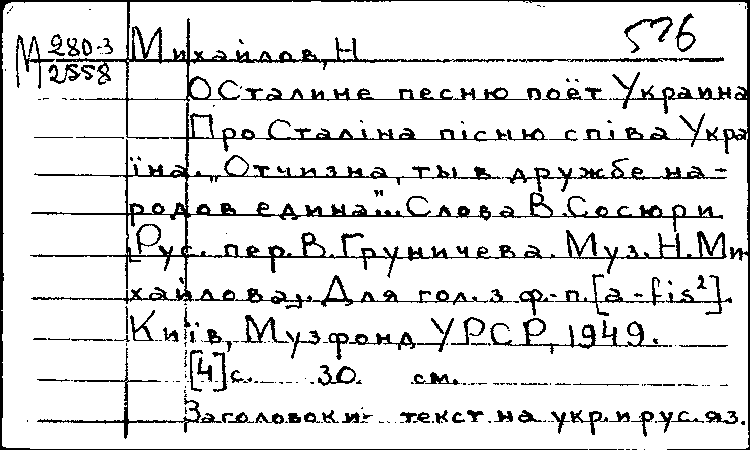 576
М 280-3
2558
Михайлов, Н
О Сталине песню поёт Украина
Про Сталіна пісню співа Укра
їна. „Отчизна, ты в дружбе на-
родов едина"... Слова В. Сосюри
[Рус. пер. В. Груничева. Муз. Н. Ми-
хайлова]. Для гол. з ф.-п. [a-fis²].
Київ, Музфонд УРСР, 1949.
[4] с. 30. см.
Заголовок и текст на укр. и рус. яз.